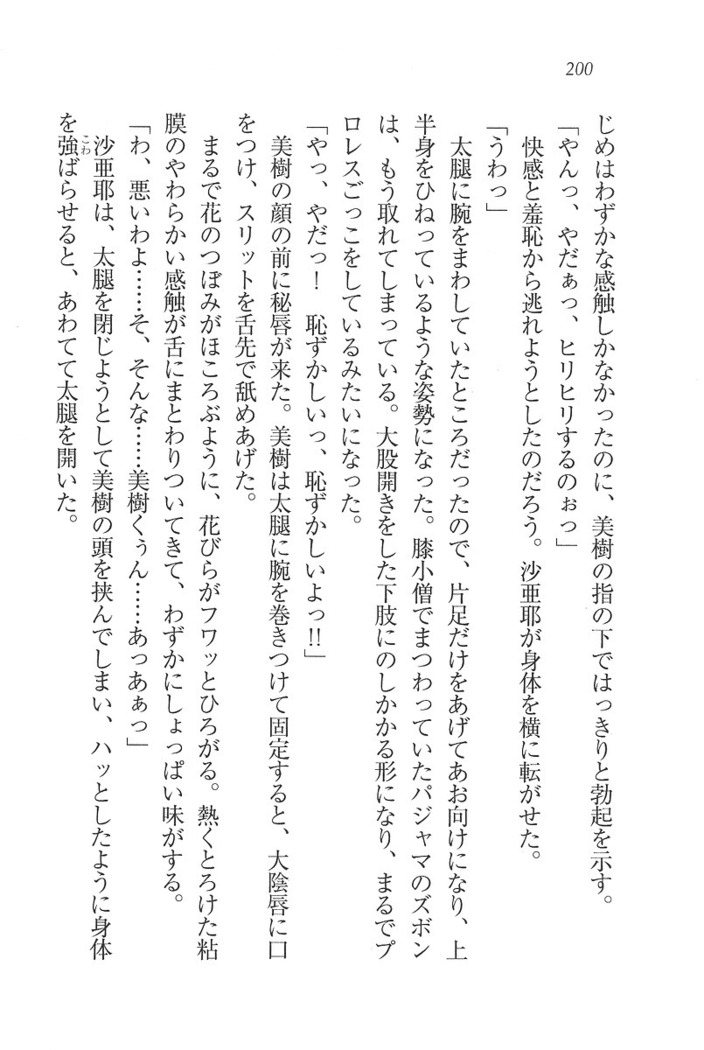 200
じめはわずかな感触しかなかったのに、美樹の指の下ではっきりと勃起を示す。
「やんっ、やだぁっ、ヒリヒリするのぉっ」
快感と羞恥から逃れようとしたのだろう。沙亜耶が身体を横に転がせた。
「うわっ」
太腿に腕をまわしていたところだったので、片足だけをあげてあお向けになり、上
半身をひねっているような姿勢になった。膝小僧でまつわっていたパジャマのズボン
は、もう取れてしまっている。大股開きをした下肢にのしかかる形になり、まるでプ
ロレスごっこをしているみたいになった。
「やっ、やだっ！　恥ずかしいっ、恥ずかしいよっ!!」
美樹の顔の前に秘唇が来た。美樹は太腿に腕を巻きつけて固定すると、大陰唇に口
をつけ、スリットを舌先で舐めあげた。
まるで花のつぼみがほころぶように、花びらがフワッとひろがる。熱くとろけた粘
膜のやわらかい感触が舌にまとわりついてきて、わずかにしょっぱい味がする。
「わ、悪いわよ……そ、そんな……美樹くぅん……あっあぁっ」
沙亜耶は、太腿を閉じようとして美樹の頭を挟んでしまい、ハッとしたように身体
を強ばらせると、あわてて太腿を開いた。
こわ